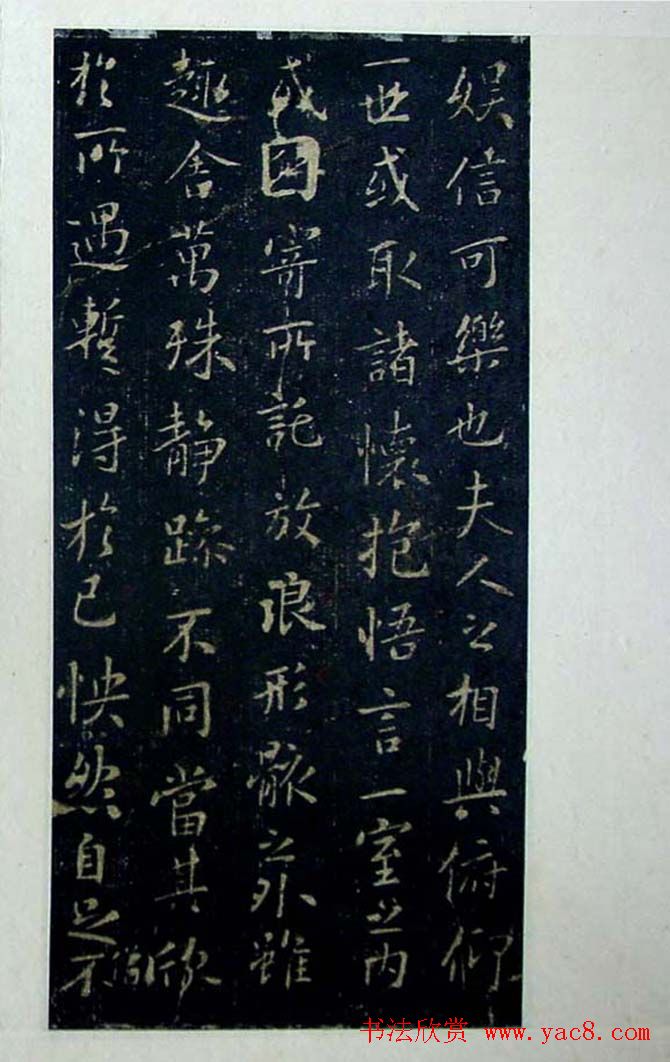 娯信可樂也夫人之相與俯仰
一世或取諸懷抱悟言一室之内
或因寄所託放浪形骸之外雖
趣舍萬殊静躁不同當其欣
於所遇暫得於己怏然自足不
書法欣赏 www.yac8.com